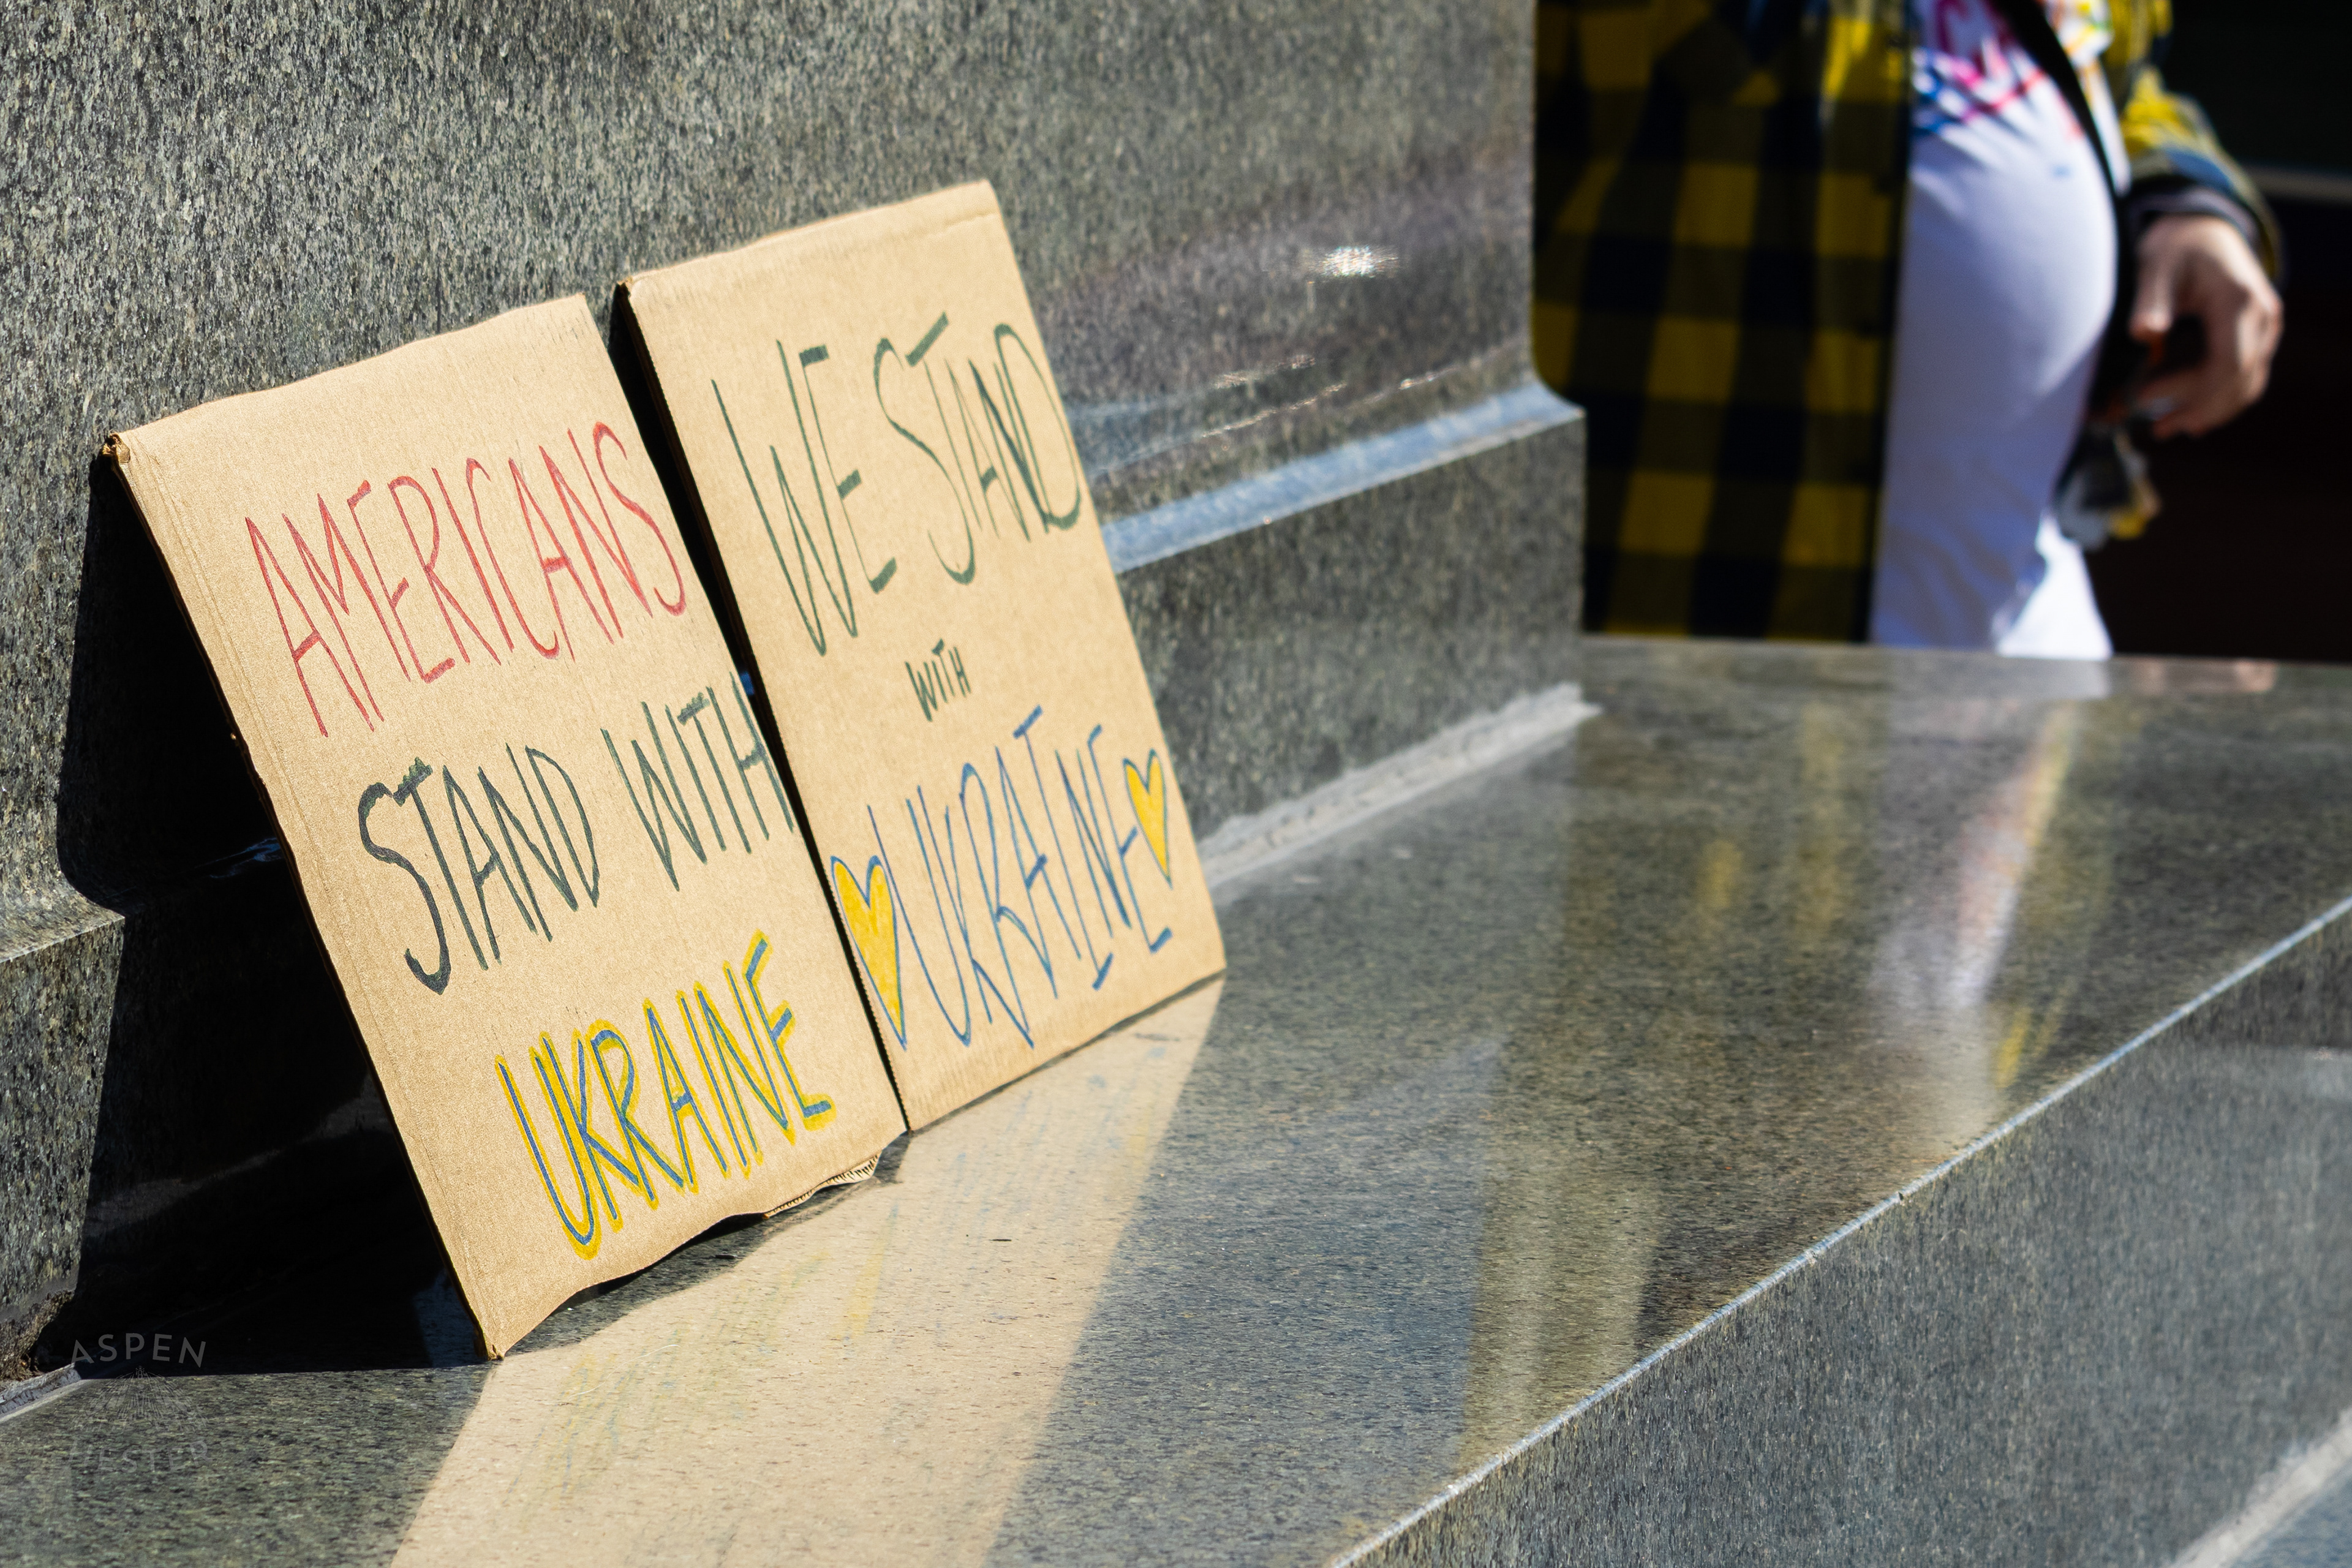 AMERICANS
STAND WITH
UKRAINE
WE STAND
WITH
UKRAINE
ASPEN